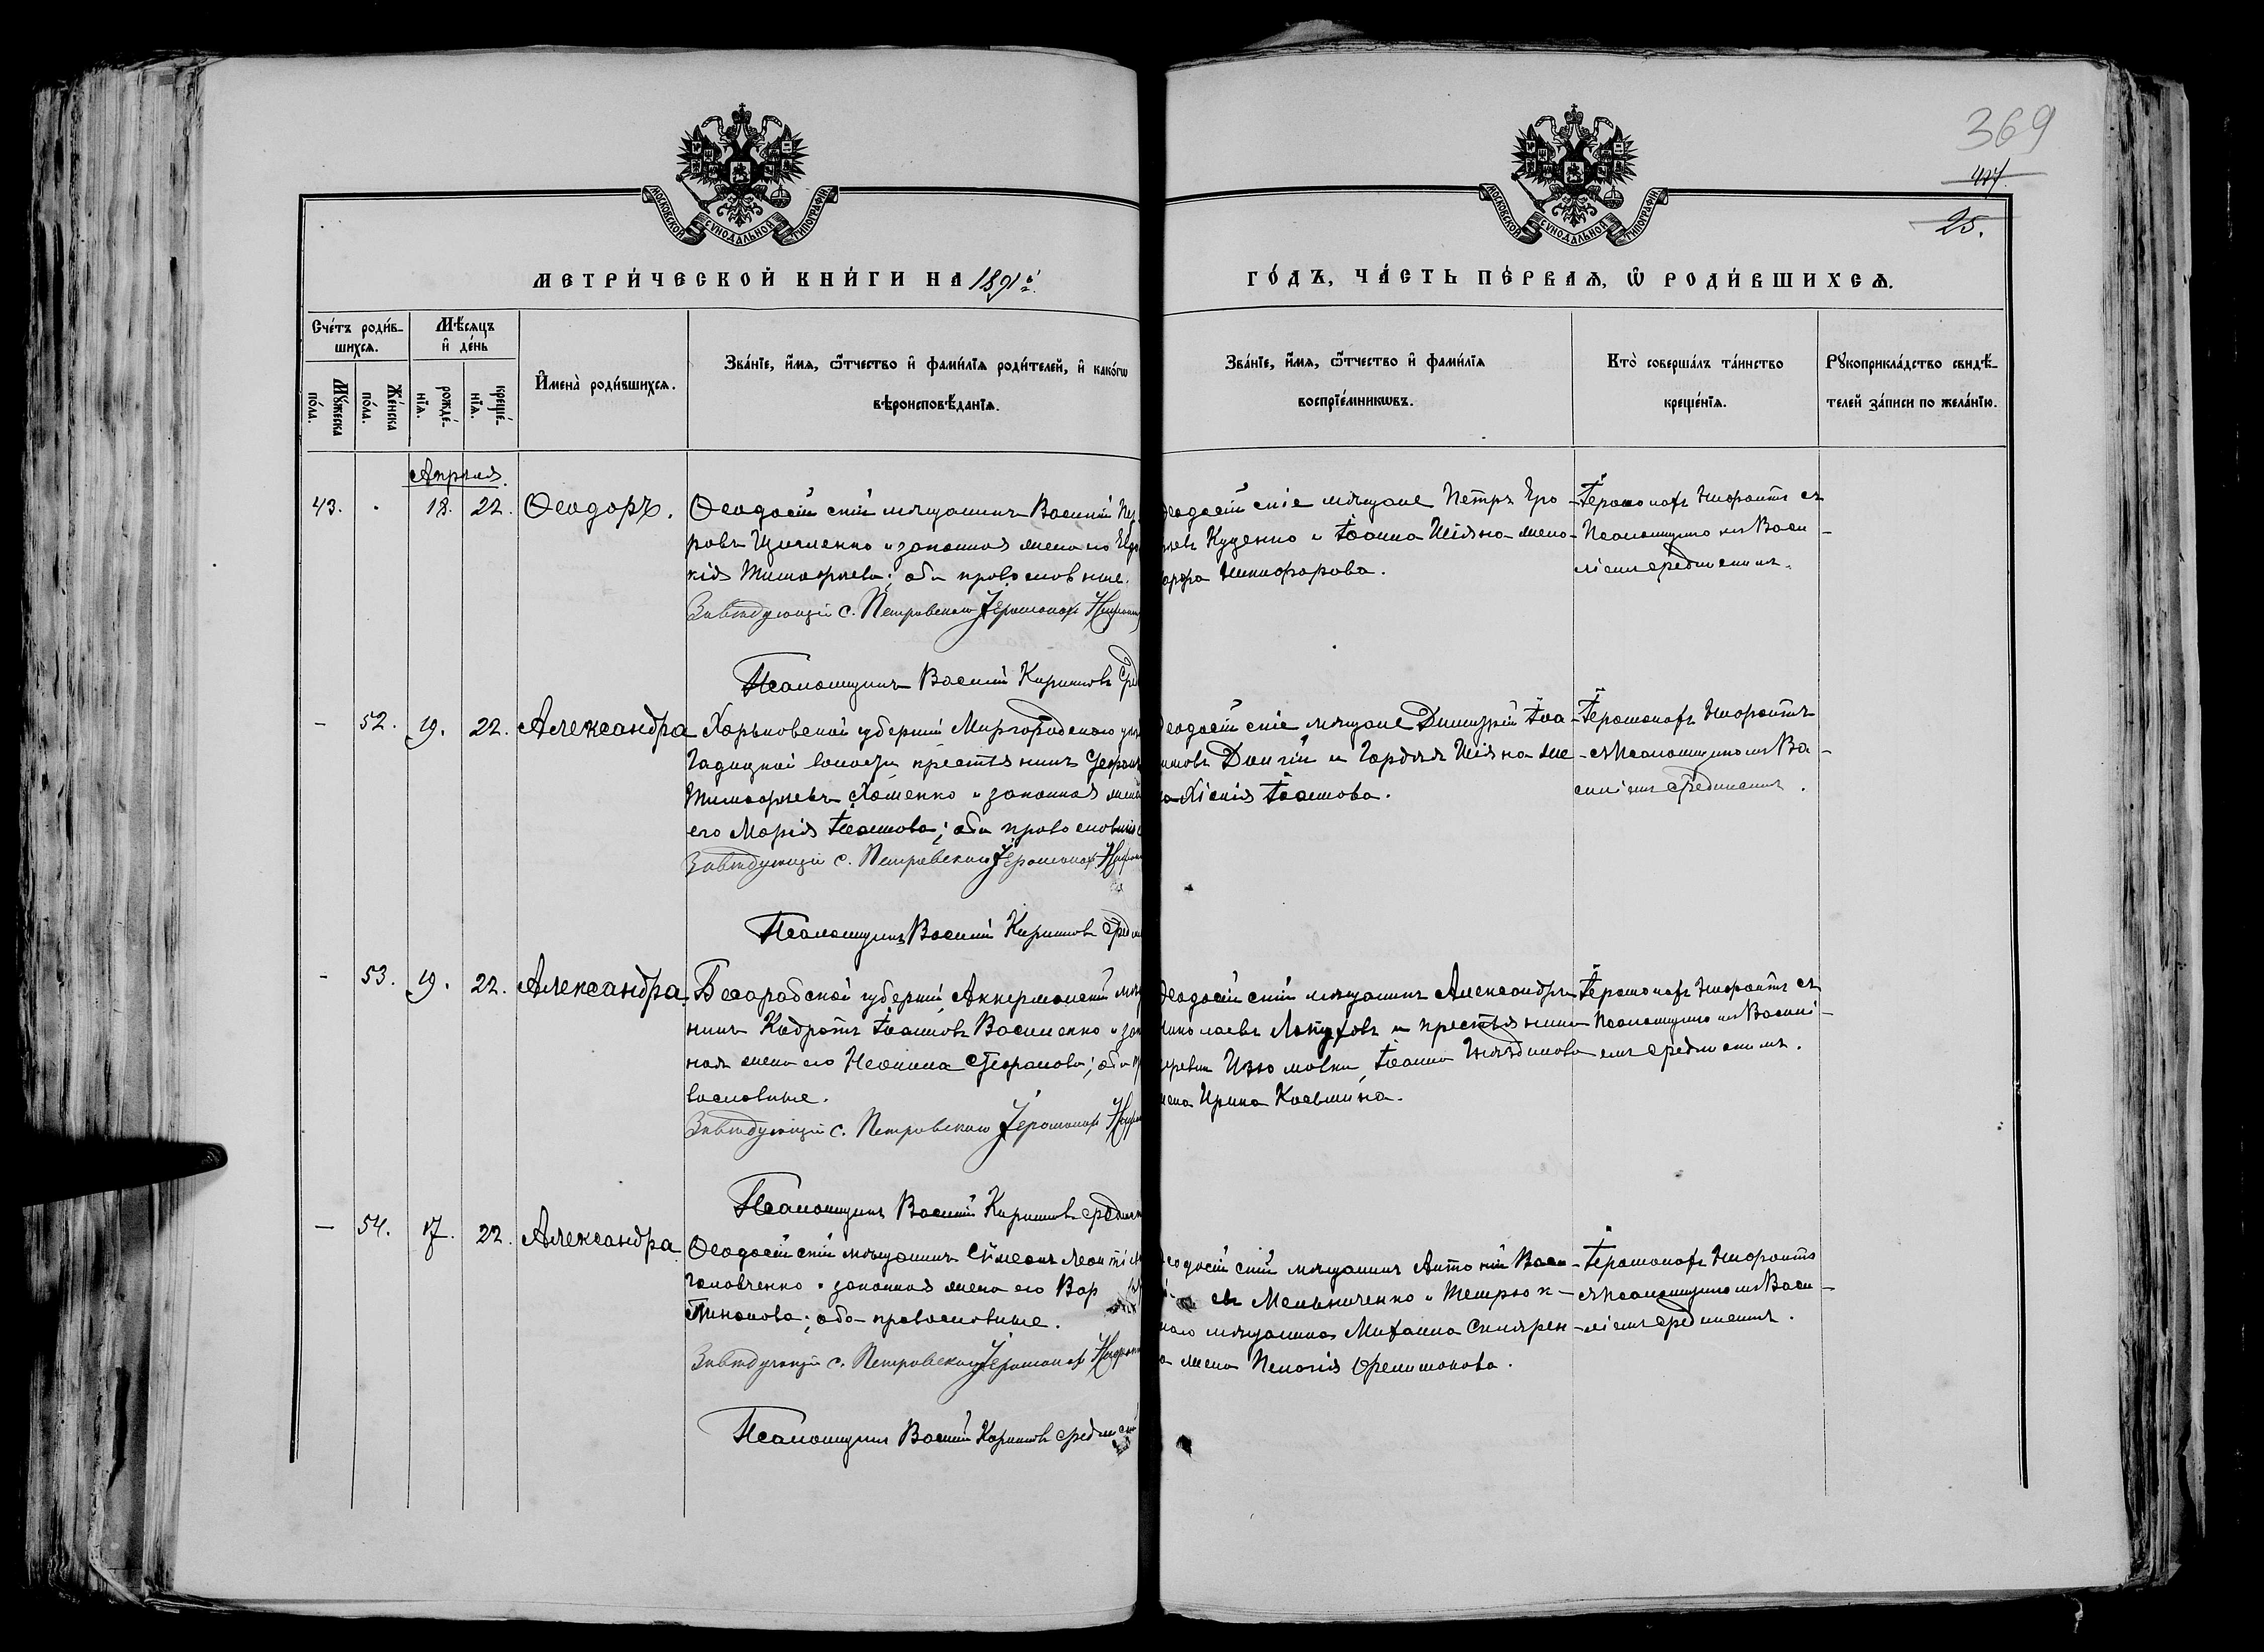 369
25.
МОСКОВСКОЙ СѴНОДАЛЬНОЙ ТИПОГРАФІИ
МОСКОВСКОЙ СѴНОДАЛЬНОЙ ТИПОГРАФІИ
МЕТРИ́ЧЕСКОЙ КНИ́ГИ НА 1891й
ГО́ДЪ, ЧА́СТЬ ПЕ́РВАѦ, Ѡ РОДИ́ВШИХСѦ.
Сче́тъ роди́в-
шихсѧ.
Мꙋ́жеска по́ла.
Же́нска по́ла.
Мѣ́сѧцъ
и҆ де́нь
рожде́-
нїѧ.
креще́-
нїѧ.
И҆мена̀ роди́вшихсѧ.
Зва́нїе, и҆́мѧ, ѻ҆́тчество и҆ фами́лїѧ роди́телей, и҆ како́гѡ
вѣроисповѣ́данїѧ.
Зва́нїе, и҆́мѧ, ѻ҆́тчество и҆ фами́лїѧ
воспрїе́мникѡвъ.
Кто̀ соверша́лъ та́инство
креще́нїѧ.
Рꙋкоприкла́дство свидѣ́-
телей за́писи по жела́нїю.
Апрѣля.
43.
18.
22.
Ѳеодоръ.
Ѳеодосійскій мѣщанинъ Василій Пет
ровъ и законная жена его Евдо
кія Тимофѣева; оба православные.
Завѣдующій с. Петровскаго Іеромонахъ
Псаломщикъ Василій Кириловъ
еодосійскіе мѣщане Петръ
Куценко и Іоанна жена
Никифорова.
Іеромонахъ Нифонтъ съ
Псаломщикомъ Васи-
ліемъ Срединскимъ.
-
52.
19.
22.
Александра
Харьковской губерніи Миргородскаго
волости крестьянинъ
Тимофѣевъ Хоменко и законная жена
его Марія Іоаннова; оба православные
Завѣдующій с. Петровскаго Іеромонахъ
Псаломщикъ Василій Кириловъ
еодосійскіе мѣщане Димитрій Іоа-
нновъ и же-
на Ксенія Іоаннова.
Іеромонахъ Нифонтъ
съ Псаломщикомъ Ва-
силіемъ Срединскимъ.
-
53.
19.
22.
Александра.
Бесарабской губерніи Аккерманскій мѣщ
нинъ Кодратъ Іоанновъ Василенко и зак
ная жена его Неонила Стефанова; оба пр
вославные.
Завѣдующій с. Петровскаго Іеромонахъ
Псаломщикъ Василій Кириловъ
еодосійскій мѣщанинъ Александръ
Николаевъ и крестьянина
деревни Изюмовки, Іоанна
жена Ирина Косьмина.
Іеромонахъ Нифонтъ съ
Псаломщикомъ Василі-
емъ Срединскимъ.
-
54.
17.
22.
Александра
Ѳеодосійскій мѣщанинъ Сѵмеонъ Леонтіев
Головченко и законная жена его Вар
оба православные.
Завѣдующій с. Петровскаго Іеромонахъ
Псаломщикъ Василій Кириловъ
еодосійскій мѣщанинъ Антоній Васи-
евъ Мельниченко и Темрюк-
скаго мѣщанина Михаила Скляренк-
а жена Пелагія
Іеромонахъ Нифонтъ
съ Псаломщикомъ Васи-
ліемъ Срединскимъ.